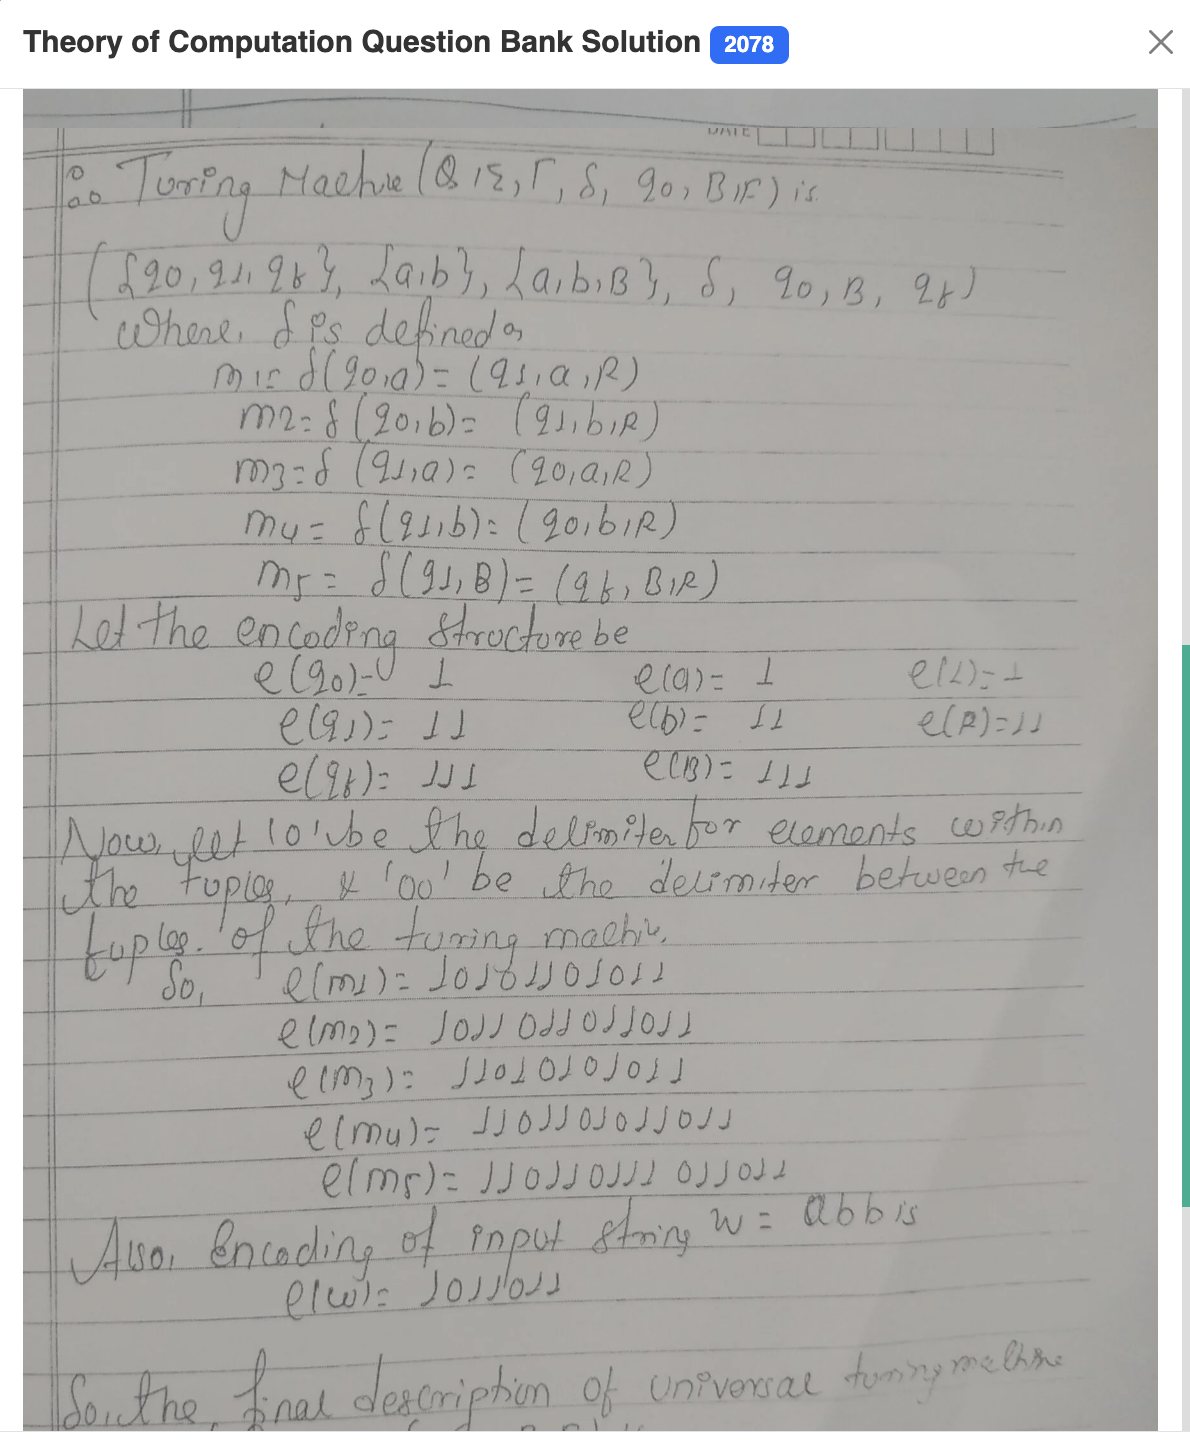 Theory of Computation Question Bank Solution 2078
DATE
∴ Turing Machine (Q, Σ, Γ, δ, q0, B, F) is.
({q0, q1, qf}, {a,b}, {a,b,B}, δ, q0, B, qf)
Where, δ is defined as
m1= δ(q0,a)= (q1,a,R)
m2= δ(q0,b)= (q1,b,R)
m3= δ(q1,a)= (q0,a,R)
m4= δ(q1,b)= (q0,b,R)
m5= δ(q1,B)= (qf, B,R)
Let the encoding structure be
e(q0)= 1 e(a)= 1 e(L)= 1
e(q1)= 11 e(b)= 11 e(R)=11
e(qf)= 111 e(B)= 111
Now, let '0' be the delimiter for elements within
the tuples, & '00' be the delimiter between the
tuples. of the turing machin.
So, e(m1)= 10101101011
e(m2)= 1011011011011
e(m3)= 11010101011
e(m4)= 1101101011011
e(m5)= 110110111011011
Also, Encoding of input string w = abb is
e(w)= 1011011
So, the final description of universal turing machine